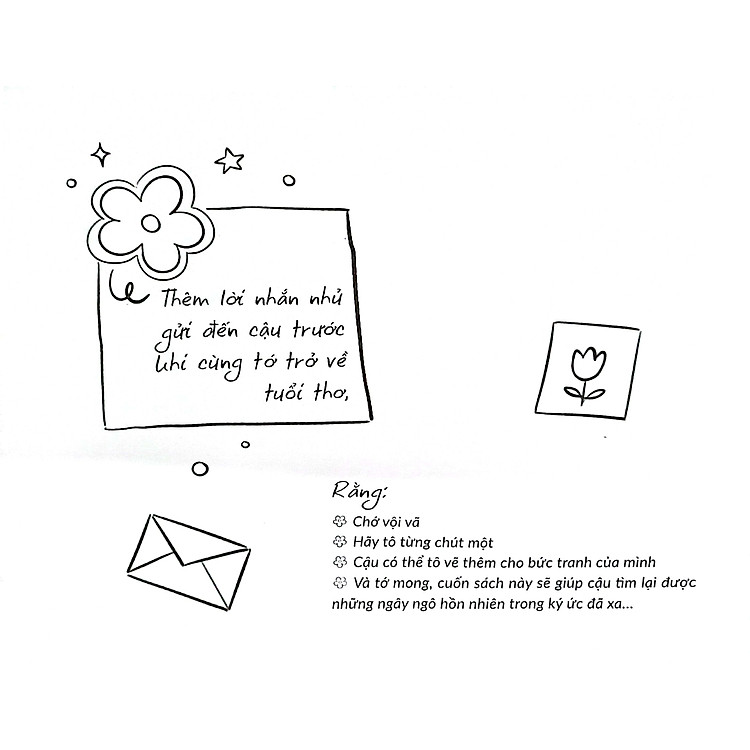 Thêm lời nhắn nhủ
gửi đến cậu trước
khi cùng tớ trở về
tuổi thơ,
Rằng:
Chớ vội vã
Hãy tô từng chút một
Cậu có thể tô vẽ thêm cho bức tranh của mình
Và tớ mong, cuốn sách này sẽ giúp cậu tìm lại được
những ngây ngô hồn nhiên trong ký ức đã xa...